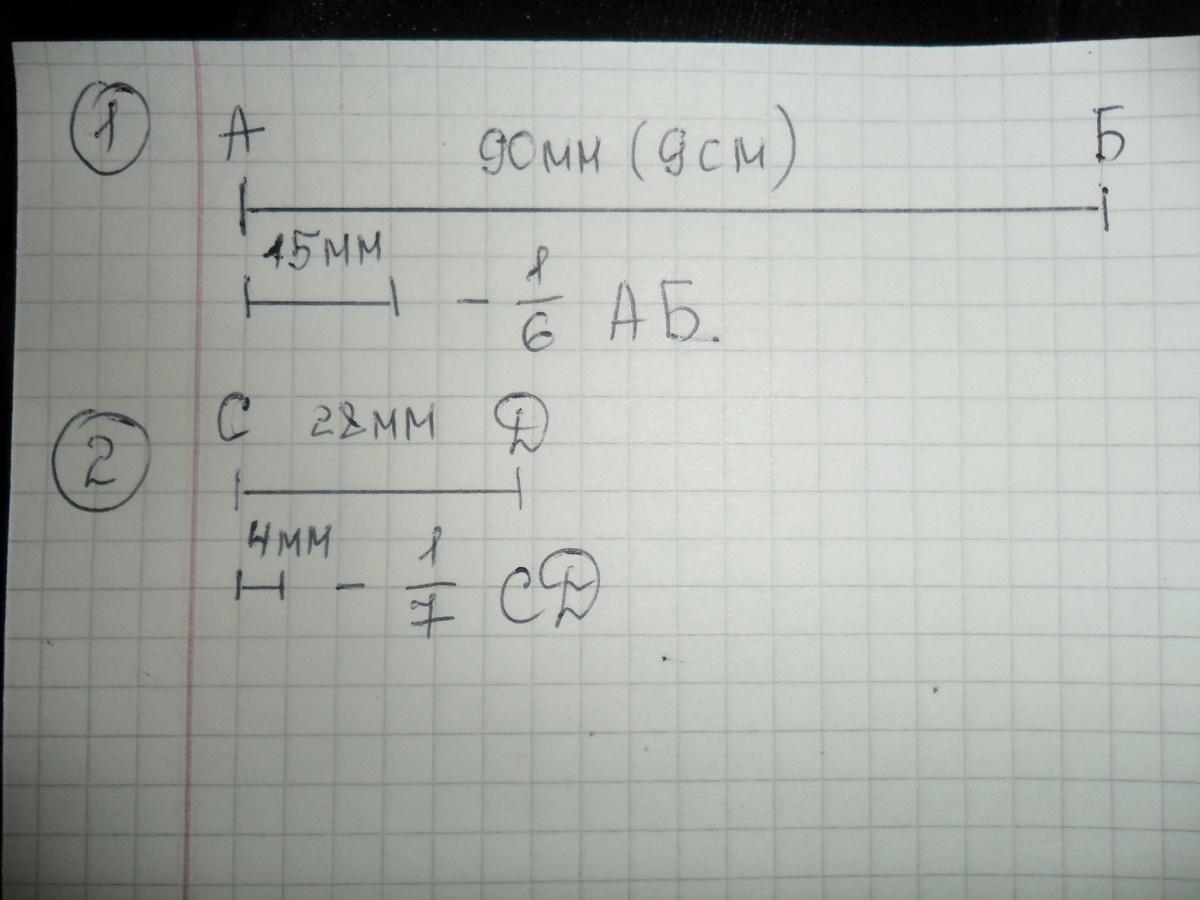 1 А 90мм (9см) Б
15мм
- 1/6 АБ.
2 С 28мм D
4мм
- 1/7 СD